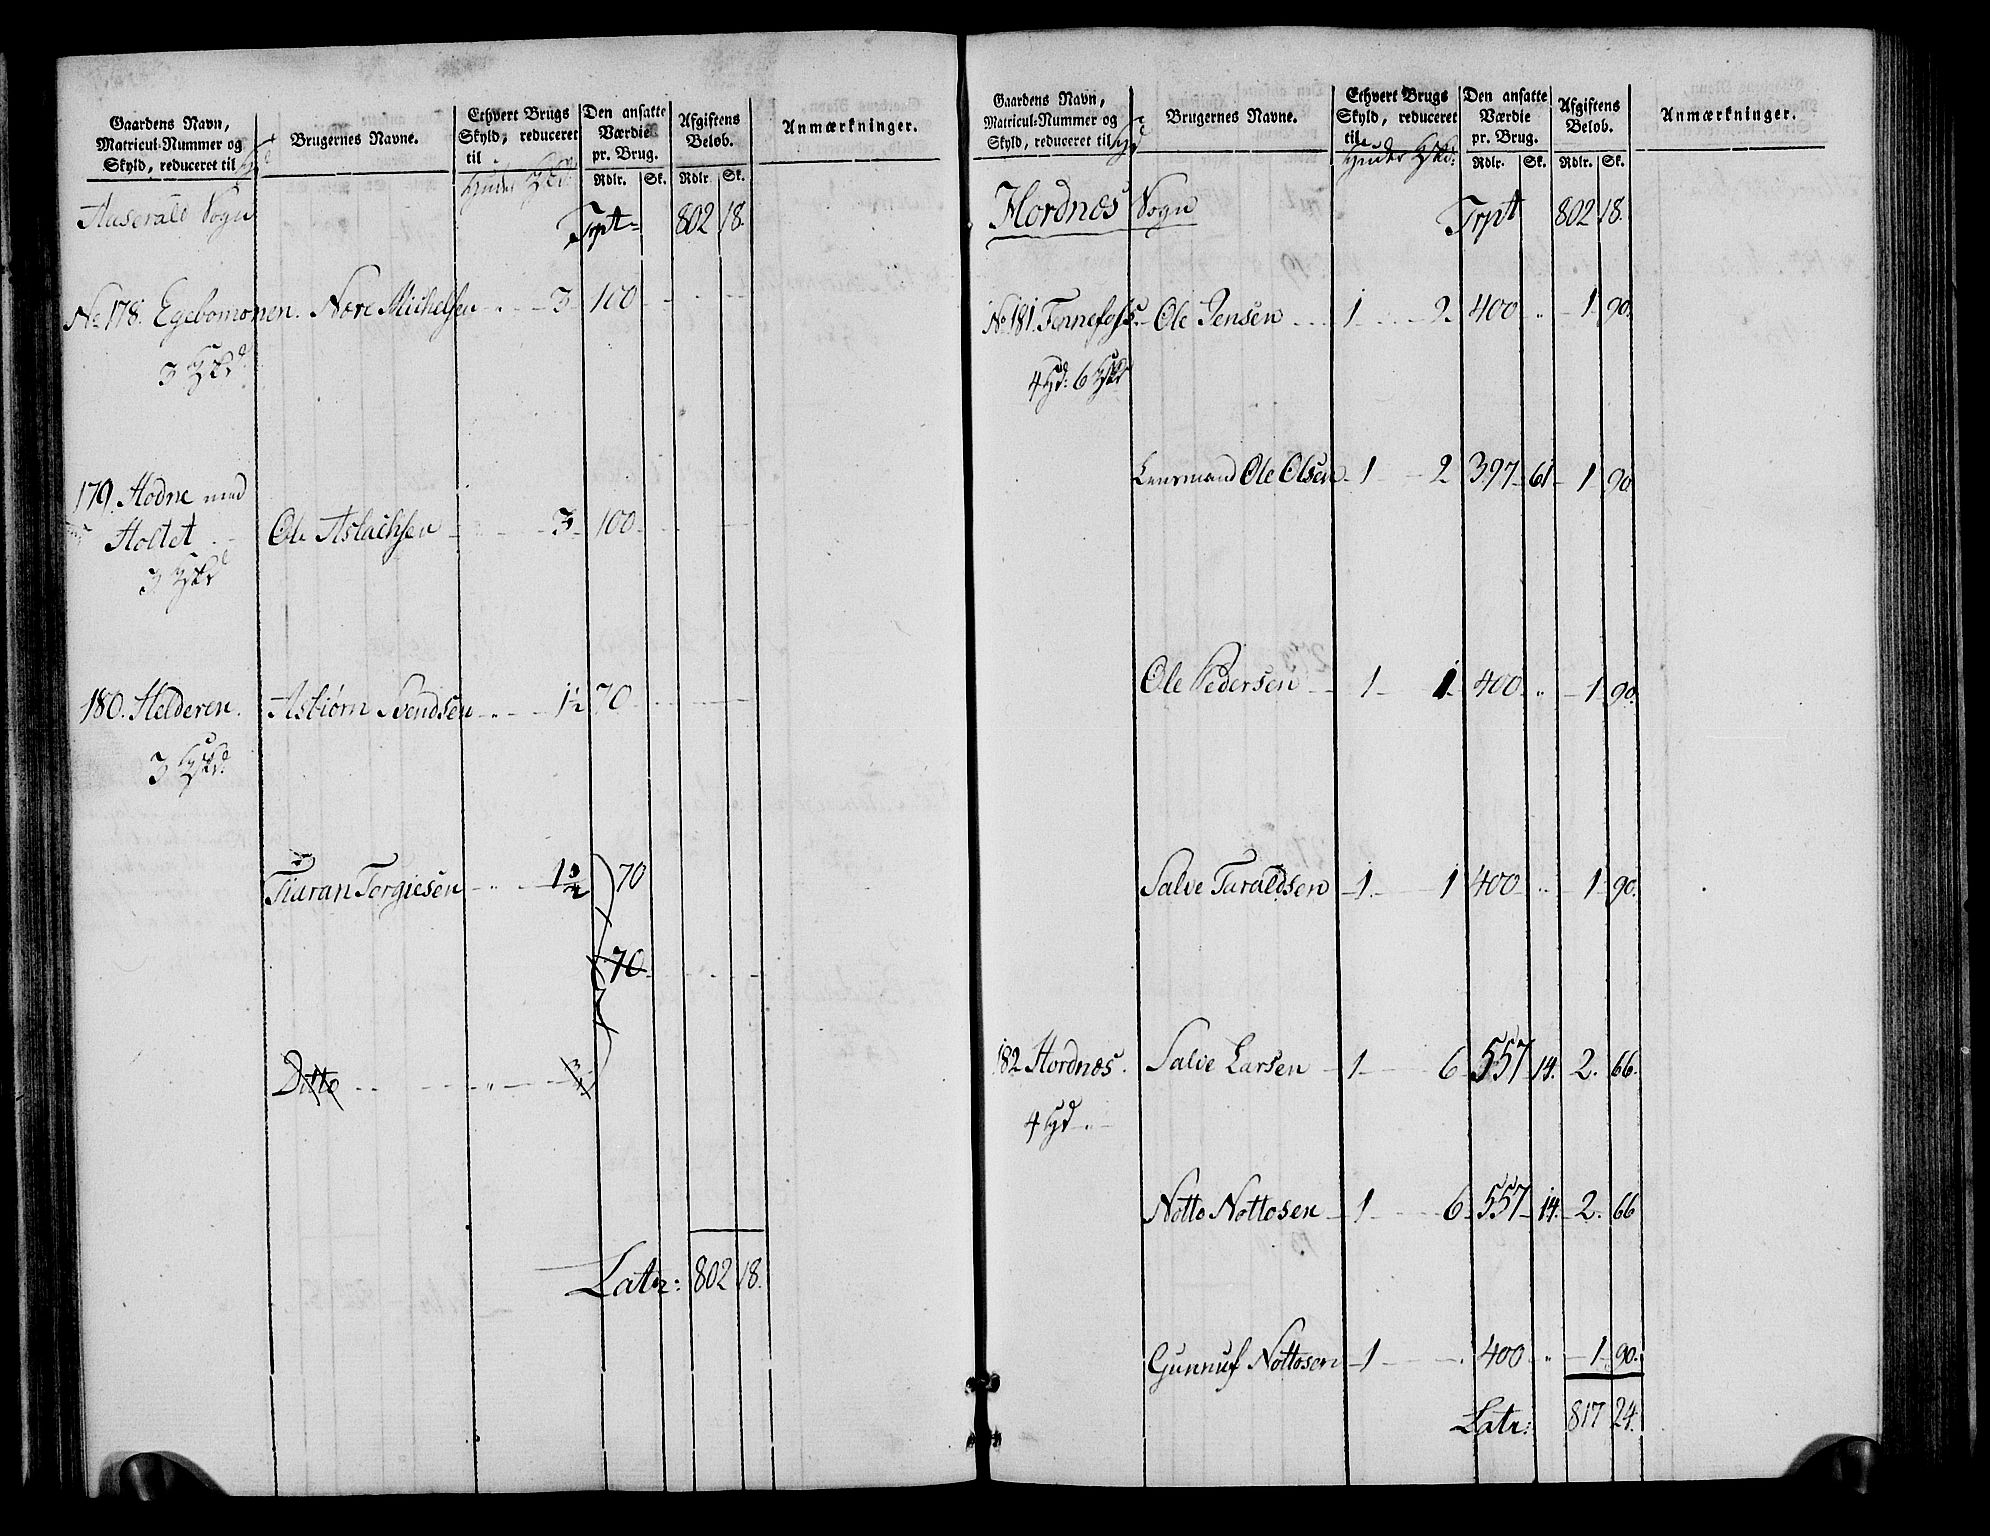 Gaardens Navn, Matricul-Nummer og Skyld, reduceret til
Brugernes Navne.
Ethvert Brugs Skyld, reduceret til Huder
Den ansatte Værdie pr. Brug. Rdlr. Sk.
Afgiftens Beløb. Rdlr. Sk.
Anmærkninger.
Aaseralds Sogn Trpt 802 18.
No 178. Egebomonen. Nore Michelsen 3 100
3
179. Hodne med
Holtet Ole Aslachsen 3 100
3
180. Helderen. Asbiørn Svendsen 1½ 70
3
Tiaran Torgiesen 1½ 70
70
Ditto
Latr: 802 18.
Gaardens Navn, Matricul-Nummer og Skyld, reduceret til
Brugernes Navne.
Ethvert Brugs Skyld, reduceret til Huder
Den ansatte Værdie pr. Brug. Rdlr. Sk.
Afgiftens Beløb. Rdlr. Sk.
Anmærkninger.
Hordnæs Sogn Trpt 802 18.
No 181. Tennefoss. Ole Jensen 1 2 400 1 90.
4 Hd: 6
Lensmand Ole Olsen 1 2 397 61 1 90
Ole Pedersen 1 1 400 1 90.
Salve Taraldsen 1 1 400 1 90.
182 Hordnæs. Salve Larsen 1 6 557 14. 2. 66.
4 Hd
Notto Nottosen 1 6 557 14. 2. 66
Gunnuf Nottosen 1 400 1 90.
Latr: 817 24.